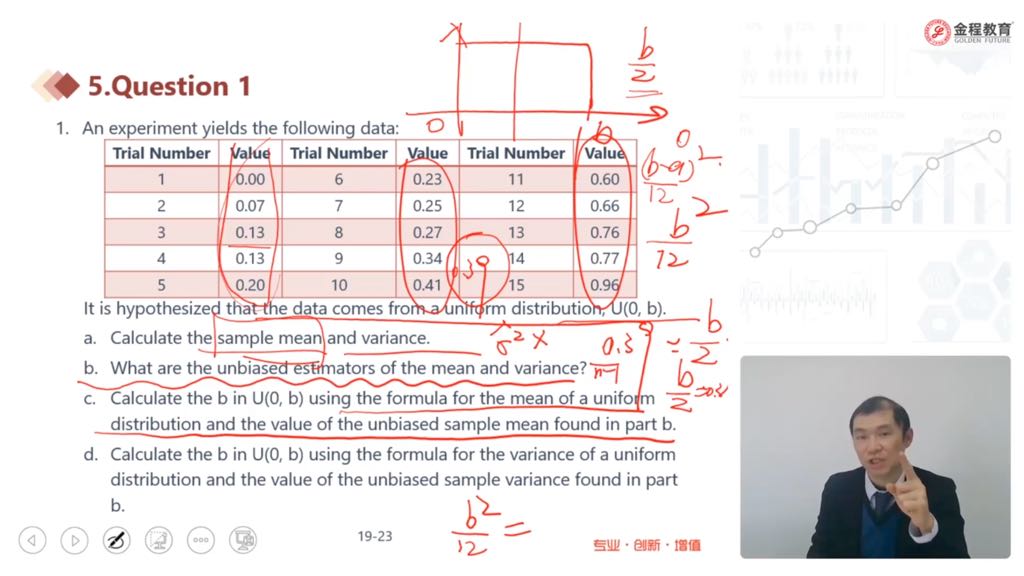 金程教育
GOLDEN FUTURE
5.Question 1
1. An experiment yields the following data:
Trial Number Value Trial Number Value Trial Number Value
1 0.00 6 0.23 11 0.60
2 0.07 7 0.25 12 0.66
3 0.13 8 0.27 13 0.76
4 0.13 9 0.34 14 0.77
5 0.20 10 0.41 15 0.96
It is hypothesized that the data comes from a uniform distribution, U(0, b).
a. Calculate the sample mean and variance.
b. What are the unbiased estimators of the mean and variance?
c. Calculate the b in U(0, b) using the formula for the mean of a uniform
distribution and the value of the unbiased sample mean found in part b.
d. Calculate the b in U(0, b) using the formula for the variance of a uniform
distribution and the value of the unbiased sample variance found in part
b.
0 b
b/2
0
(b-a)²/12
b²/12
0.39
= b/2
b²/12 =
19-23
专业·创新·增值